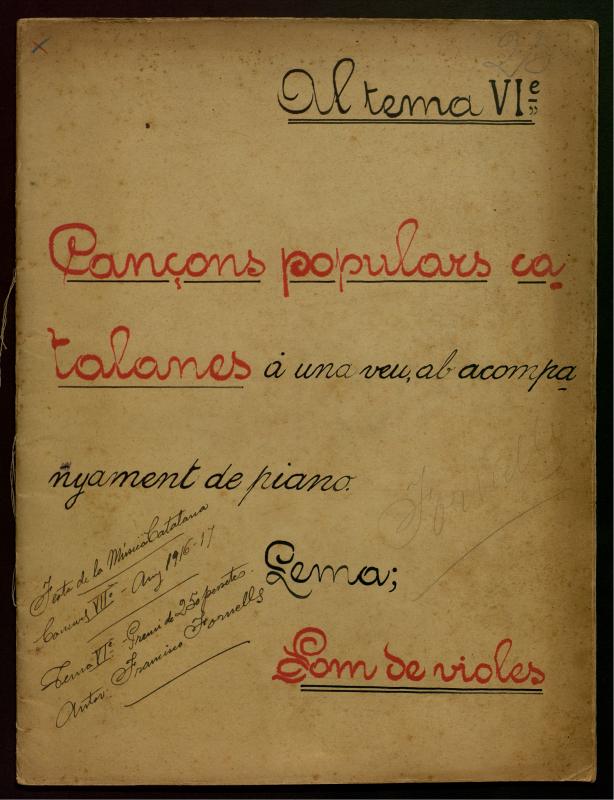 Al tema VIe
Cançons populars ca
talanes á una veu, ab acompa
nyament de piano.
Fornells
Lema;
Pom de violes
Festa de la Música Catalana
Concurs VIIè - Any 1916-17
Tema VIè Premi de 250 pessetes.
Autor: Francisco Fornells